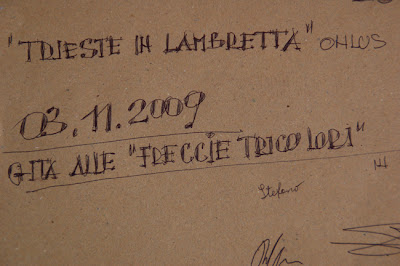 "TRIESTE IN LAMBRETTA" ONLUS
03.11.2009
GITA ALLE "FRECCIE TRICOLORI"
Stefano